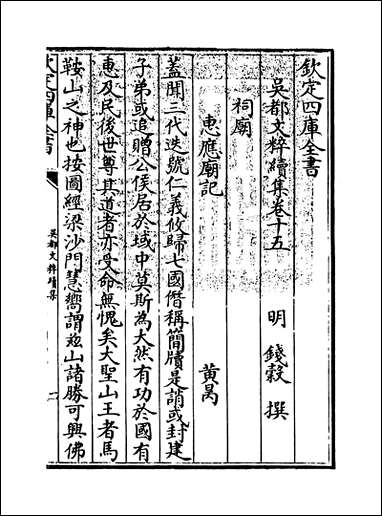 欽定四庫全書
吳都文粹續集卷十五
明 錢穀 撰
祠廟
惠應廟記 黃暠
蓋聞三代迭號仁義攸歸七國僭稱簡牘是誚或封建
子弟或追贈公侯居於域中莫斯為大然有功於國有
惠及民後世尊其道者亦受命無愧矣大聖山王者馬
鞍山之神也按圖經梁沙門慧嚮謂兹山諸勝可興佛
欽定四庫全書
吳都文粹續集